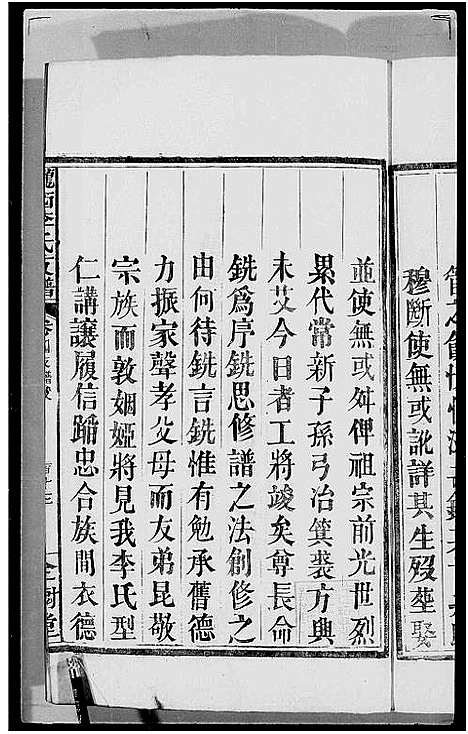 穆斷使無或訛詳其生歿塟娶
並使無或舛俾祖宗前光世烈
累代常新子孫弓冶箕裘方興
未艾今日者工將竣矣尊長命
銑爲序銑思修譜之法創修之
由何待銑言銑惟有勉承舊德
力振家聲孝父母而友弟昆敬
宗族而敦姻婭將見我李氏型
仁講讓履信蹈忠合族間衣德
隴西李氏支譜